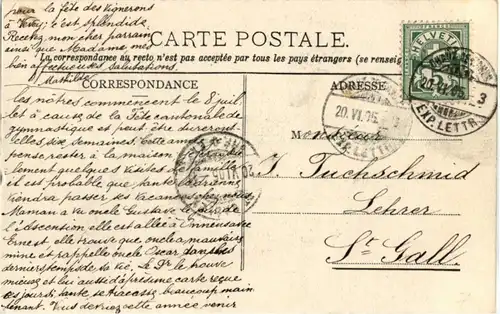 pour la fête des vignerons
à Vevey; c'est splendide.
Recevez, mon cher parrain
ainsi que Madame mes
bien affectueuses salutations.
Mathilde
CARTE POSTALE.
La correspondance au recto n'est pas acceptée par tous les pays étrangers (se renseig
CORRESPONDANCE
ADRESSE
HELVETIA
5
20.VI.05. 3
EXP. LETTR.
20.VI.05.
EXP. LETTR.
les nôtres commencent le 8 juil-
let à cause de la fête cantonale de
gymnastique et peut être dureront
elles six semaines. Cette année
pense rester à la maison
lement quelques visites
est probable que tante
viendra passer ses vacances chez nous
Maman a vu oncle Gustave le jour de
l'Ascension, elle est allée à
Ernest elle trouve que oncle a mauvaise
mine et rappelle oncle Oscar dans les
derniers temps de sa vie. Le Dr le trouve
mieux et lui aussi d'après une carte reçue
ces jours-ci; tante se tracasse beaucoup main
tenant. Vous devriez cette année venir
Monsieur
J. Tuchschmid
Lehrer
St Gall.